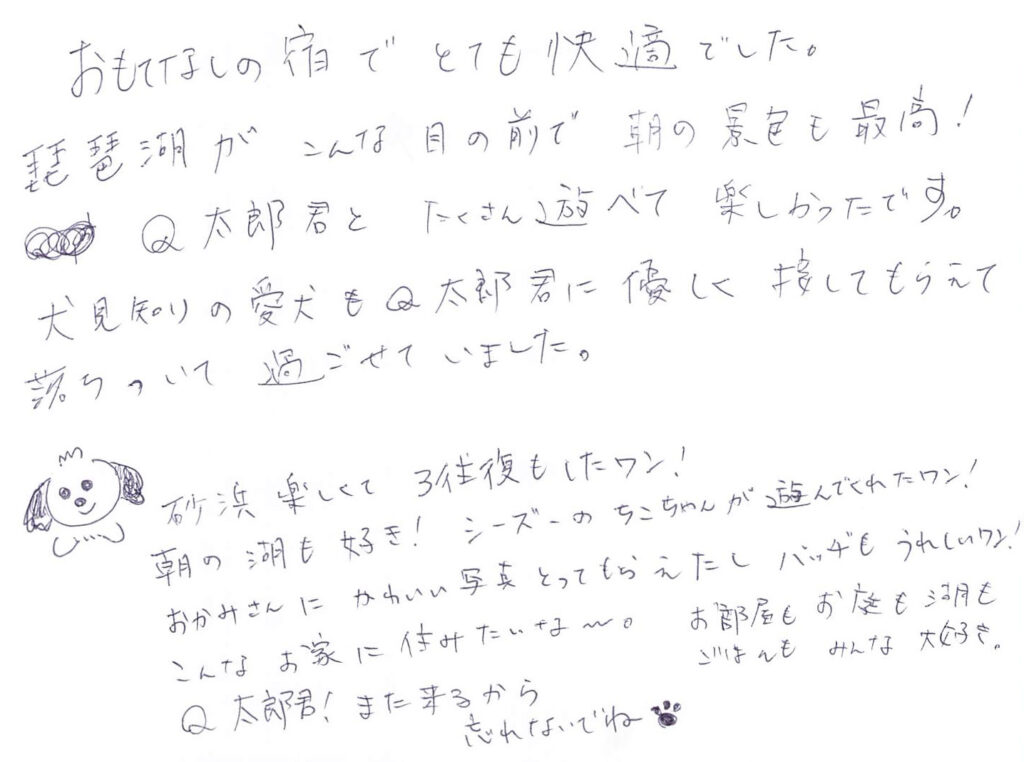 おもてなしの宿で とても快適でした。
琵琶湖が こんな目の前で 朝の景色も最高!
Q太郎君と たくさん遊べて 楽しかったです。
犬見知りの愛犬もQ太郎君に優しく接してもらえて
落ちついて過ごせていました。
砂浜楽しくて 3往復もしたワン!
朝の湖も好き! シーズーのちこちゃんが遊んでくれたワン!
おかみさんに かわいい写真とってもらえたし バッヂも うれしいワン!
こんなお家に住みたいな〜。
お部屋も お庭も 湖も
ごはんも みんな 大好き。
Q太郎君! また来るから
忘れないでね